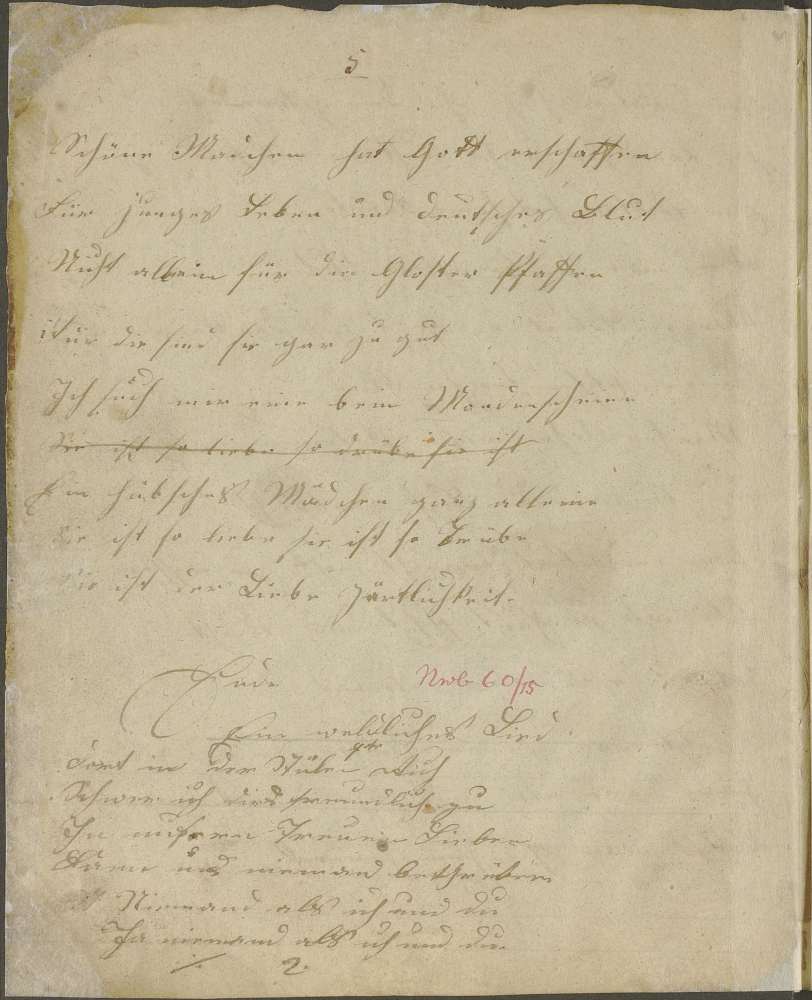 5
Schöne Mädchen hat Gott erschaffen
Für junges Leben und deutsches Blut
Nicht allein für die Gloster Pfaffen
Für die sind sie gar zu gut
Ich such mir eine beim Mondenscheine
Sie ist so liebe so trübe sie ist
Ein hübsches Mädchen ganz alleine
Sie ist so liebe sie ist so trübe
Sie ist der Liebe Zärtlichkeit.
Ende
Nrb 60/15
Ein weldliches Lied
Dort in der Stülen
Schwer ich dies freundlich zu
In unsern Treuen Lieben
Kann uns niemand bethrüben
Niemand als ich und du
Ja niemand als ich und du
2.